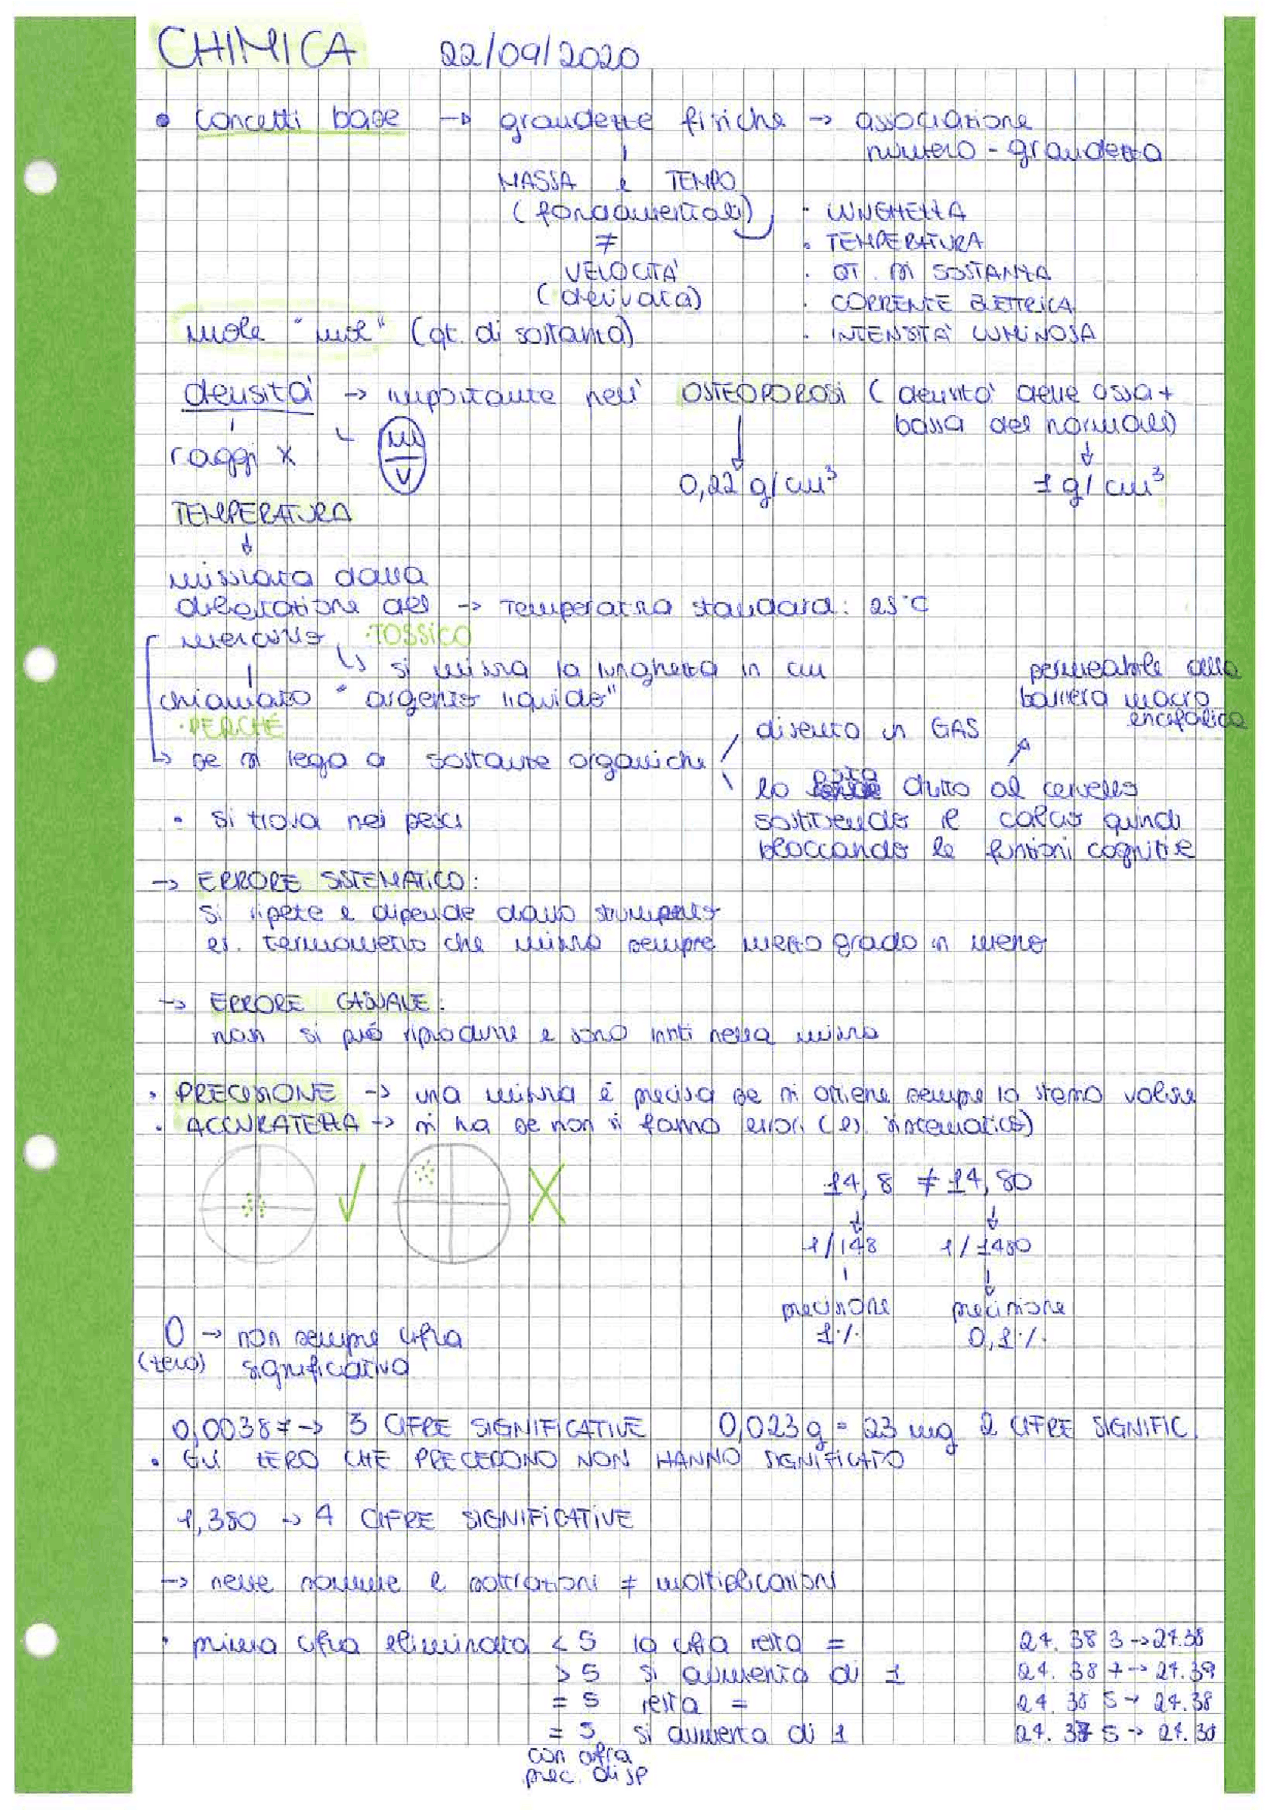 CHIMICA 22/09/2020
• concetti base → grandezze fisiche → associazione
numero - grandezza
MASSA e TEMPO
(fondamentali) · LUNGHEZZA
≠ · TEMPERATURA
VELOCITÀ · QT. DI SOSTANZA
(derivata) · CORRENTE ELETTRICA
mole "mol" (qt. di sostanza) · INTENSITÀ LUMINOSA
densità → importante nell' OSTEOPOROSI (densità delle ossa +
bassa del normale)
raggi x m/V
0,22 g/cm³ 1 g/cm³
TEMPERATURA
misurata dalla
dilatazione del → Temperatura standard: 25°C
mercurio · TOSSICO
↳ si misura la lunghezza in cm
chiamato "argento liquido"
permeabile alla
barriera macro
encefalica
· PERCHÉ
↳ se si lega a sostanze organiche
diventa un GAS
lo porta dritto al cervello
sostituendo il calcio quindi
bloccando le funzioni cognitive
· si trova nei pesci
→ ERRORE SISTEMATICO:
si ripete e dipende dallo strumento
es. termometro che misura sempre mezzo grado in meno
→ ERRORE CASUALE:
non si può riprodurre e sono insiti nella misura
· PRECISIONE → una misura è precisa se si ottiene sempre lo stesso valore
· ACCURATEZZA → si ha se non si fanno errori (es. sistematico)
14,8 ≠ 14,80
1/148 1/1480
precisione precisione
1% 0,1%
0 → non sempre cifra
(zero) significativa
0,00387 → 3 CIFRE SIGNIFICATIVE 0,023 g = 23 mg 2 CIFRE SIGNIFIC.
· GLI ZERO CHE PRECEDONO NON HANNO SIGNIFICATO
1,380 → 4 CIFRE SIGNIFICATIVE
→ nelle somme e sottrazioni ≠ moltiplicazioni
· prima cifra eliminata < 5 la cifra resta = 24.38 3 → 24.38
> 5 si aumenta di 1 24.38 7 → 24.39
= 5 resta = 24.38 5 → 24.38
= 5 si aumenta di 1 24.37 5 → 24.38
con cifra
prec. disp